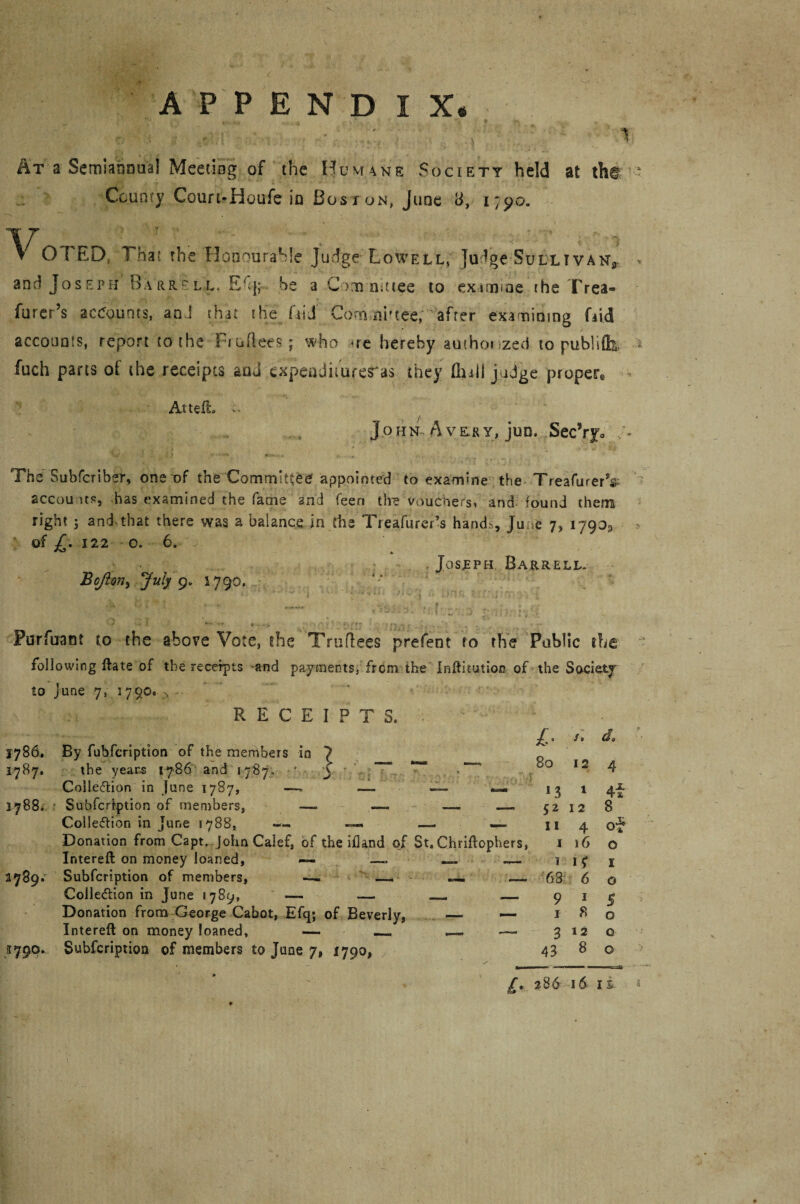 APPENDIX.
At a Semiannual Meeting of the Humane Society held at the
County Court-Houſe in Boston, June 8, 1790.
VOTED, That the Honourable Judge Lowell, Judge Sullivan,
and Joseph Barrell, Eſq; be a Committee to examine the Trea-
ſurer's accounts, and that the ſaid Committee, after examining ſaid
accounts, report to the Truſtees; who are hereby authorized to publiſh
ſuch parts of the receipts and expenditures as they ſhall judge proper.
Atteſt.
John Avery, jun. Sec'ry.
The Subſcriber, one of the Committee appointed to examine the Treaſurer's
accounts, has examined the ſame and ſeen the vouchers, and found them
right; and that there was a balance in the Treaſurer's hands, June 7, 1790,
of £. 122 0. 6.
Joseph Barrell.
Boſton, July 9. 1790.
Purſuant to the above Vote, the Truſtees preſent to the Public the
following ſtate of the receipts and payments, from the Inſtitution of the Society
to June 7, 1790.
RECEIPTS.
£. s. d.
1786. By ſubſcription of the members in }
1787. the years 1786 and 1787. } — — — 80 12 4
Collection in June 1787, — — — — 13 1 4½
1788. Subſcription of members, — — — — 52 12 8
Collection in June 1788, — — — — 11 4 0½
Donation from Capt. John Calef, of the iſland of St. Chriſtophers, 1 16 0
Intereſt on money loaned, — — — — 1 15 1
1789. Subſcription of members, — — — — 68 6 0
Collection in June 1789, — — — — 9 1 5
Donation from George Cabot, Eſq; of Beverly, — — 1 8 0
Intereſt on money loaned, — — — — 3 12 0
1790. Subſcription of members to June 7, 1790, 43 8 0
£. 286 16 11